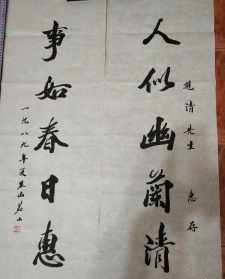 清先生 惠存
人似幽蘭清
事如春日惠
一九八九年夏焦山茗山